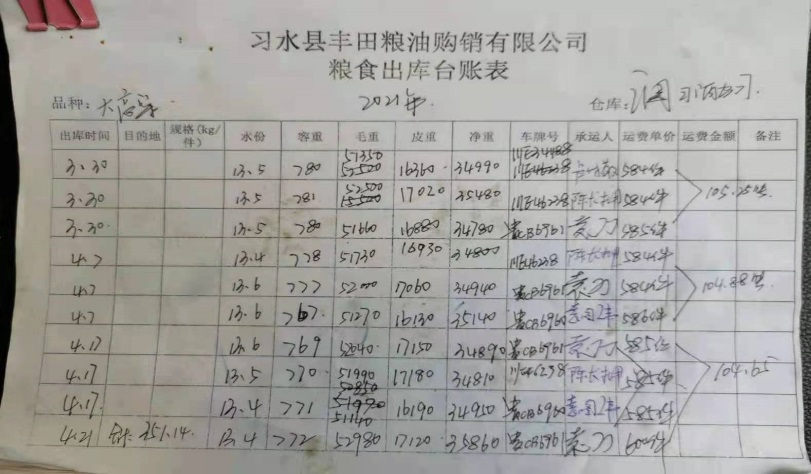 习水县丰田粮油购销有限公司
粮食出库台账表
品种: 大高粱 2021年. 仓库:
出库时间 目的地 规格(kg/件) 水份 容重 毛重 皮重 净重 车牌号 承运人 运费单价 运费金额 备注
3.30 13.5 780 51350 16360 34990 584件
3.30 13.5 781 52500 17020 35480 川E46238 584件 105.25吨
3.30 13.5 780 51660 16880 34780 贵CB6961 袁刀 585件
4.7 13.4 778 51730 16930 34800 川E46238 584件
4.7 13.6 777 52000 17060 34940 贵CB6961 袁刀 584件 104.88吨
4.7 13.6 767 51270 16130 35140 贵CB6960 586件
4.17 13.6 769 52040 17150 34890 贵CB6961 袁刀 585件
4.17 13.5 770 51990 17180 34810 585件 104.65
4.17 13.4 771 51140 16190 34950 贵CB6960 585件
4.21 合计: 351.14. 13.4 772 52980 17120 35860 贵CB6961 袁刀 600件